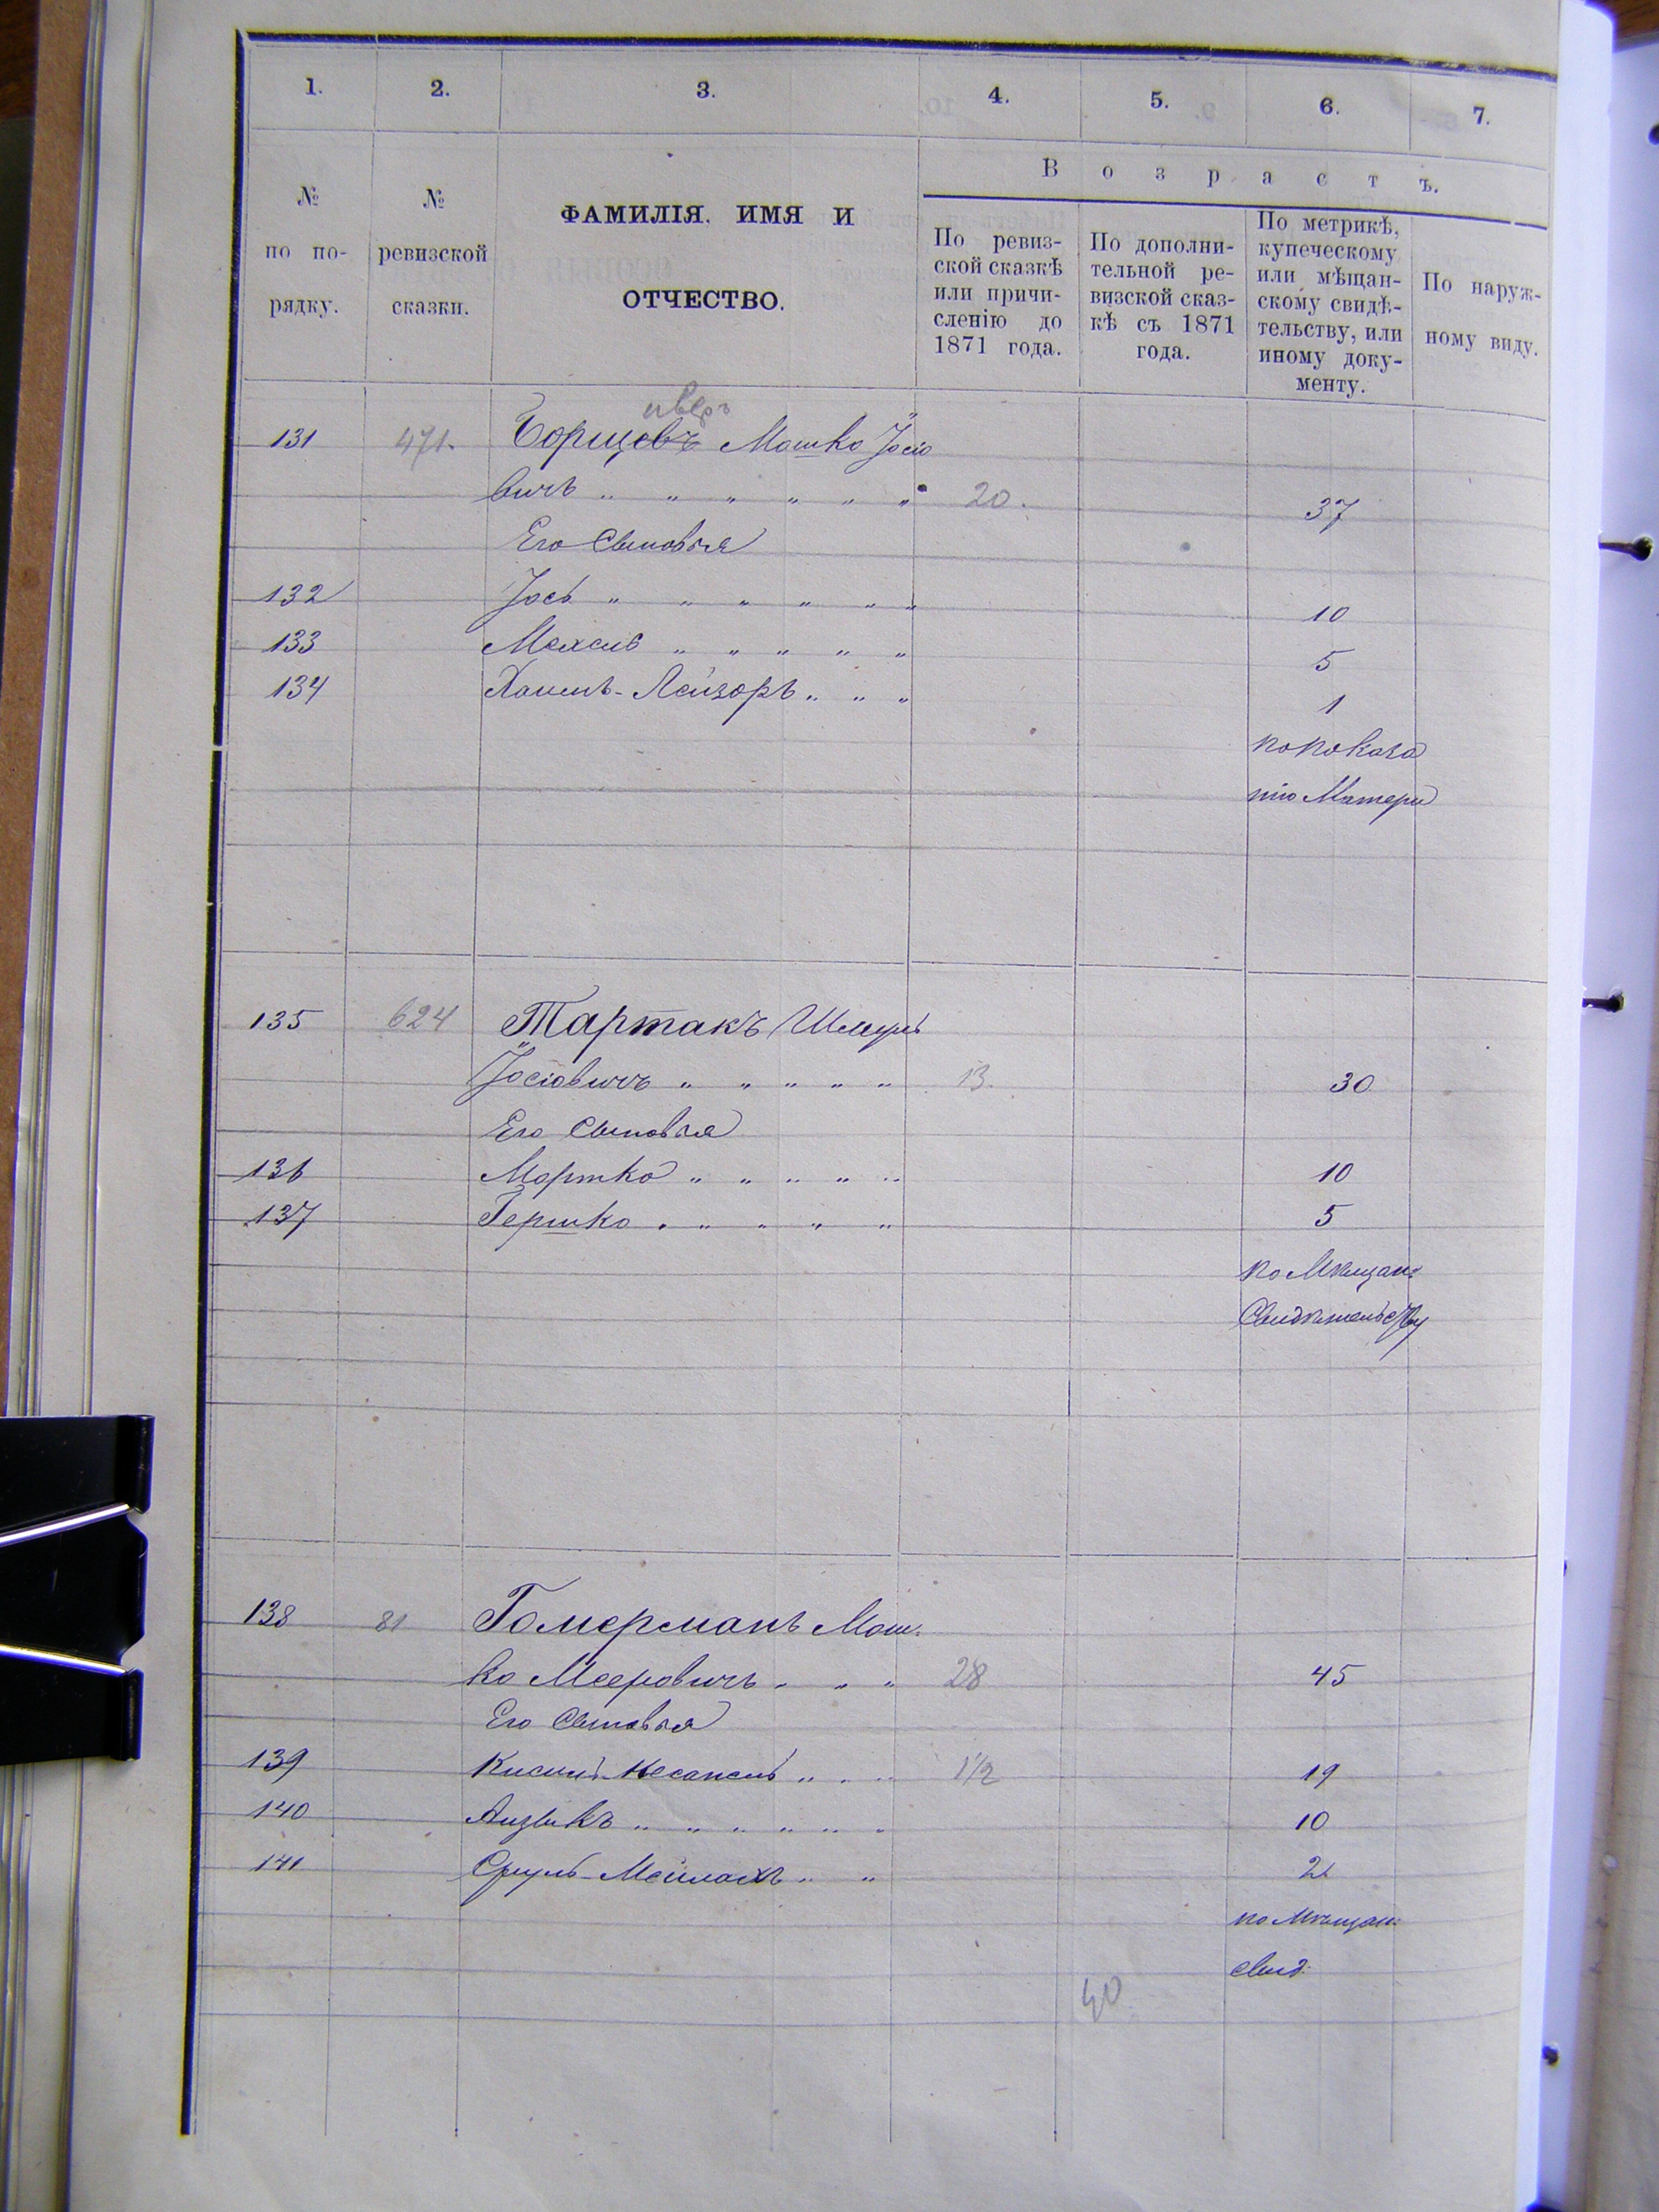 1. 2. 3. 4. 5. 6. 7.
№ по по-рядку.
№ ревизской сказки.
ФАМИЛІЯ. ИМЯ И ОТЧЕСТВО.
Возрастъ.
По ревиз-
ской сказкѣ
или причи-
сленію до
1871 года.
По дополни-
тельной ре-
визской сказ-
кѣ съ 1871
года.
По метрикѣ,
купеческому
или мѣщан-
скому свидѣ-
тельству, или
иному доку-
менту.
По наруж-
ному виду.
131 471. Борщовъ Мошко Іосіо
вичъ „ „ „ „ „ „ 20. 37
Его Сыновья
132 Іось „ „ „ „ „ „ 10
133 „ „ „ „ „ 5
134 Лейзоръ „ „ „ 1
по показа
нію Матери
135 624 Тартакъ Шмуль
Іосіовичъ „ „ „ „ „ 13. 30
Его Сыновья
136 Мортко „ „ „ „ „ 10
137 Гершко „ „ „ „ „ 5
по Мѣщан:
Свидѣтельству
138 81 Гомерманъ Мош-
ко Мееровичъ „ „ „ 28 45
Его Сыновья
139 „ „ „ 1½ 19
140 Аизыкъ „ „ „ „ „ „ 10
141 Сруль-Мейлахъ „ „ 2
по Мѣщан:
свид:
40